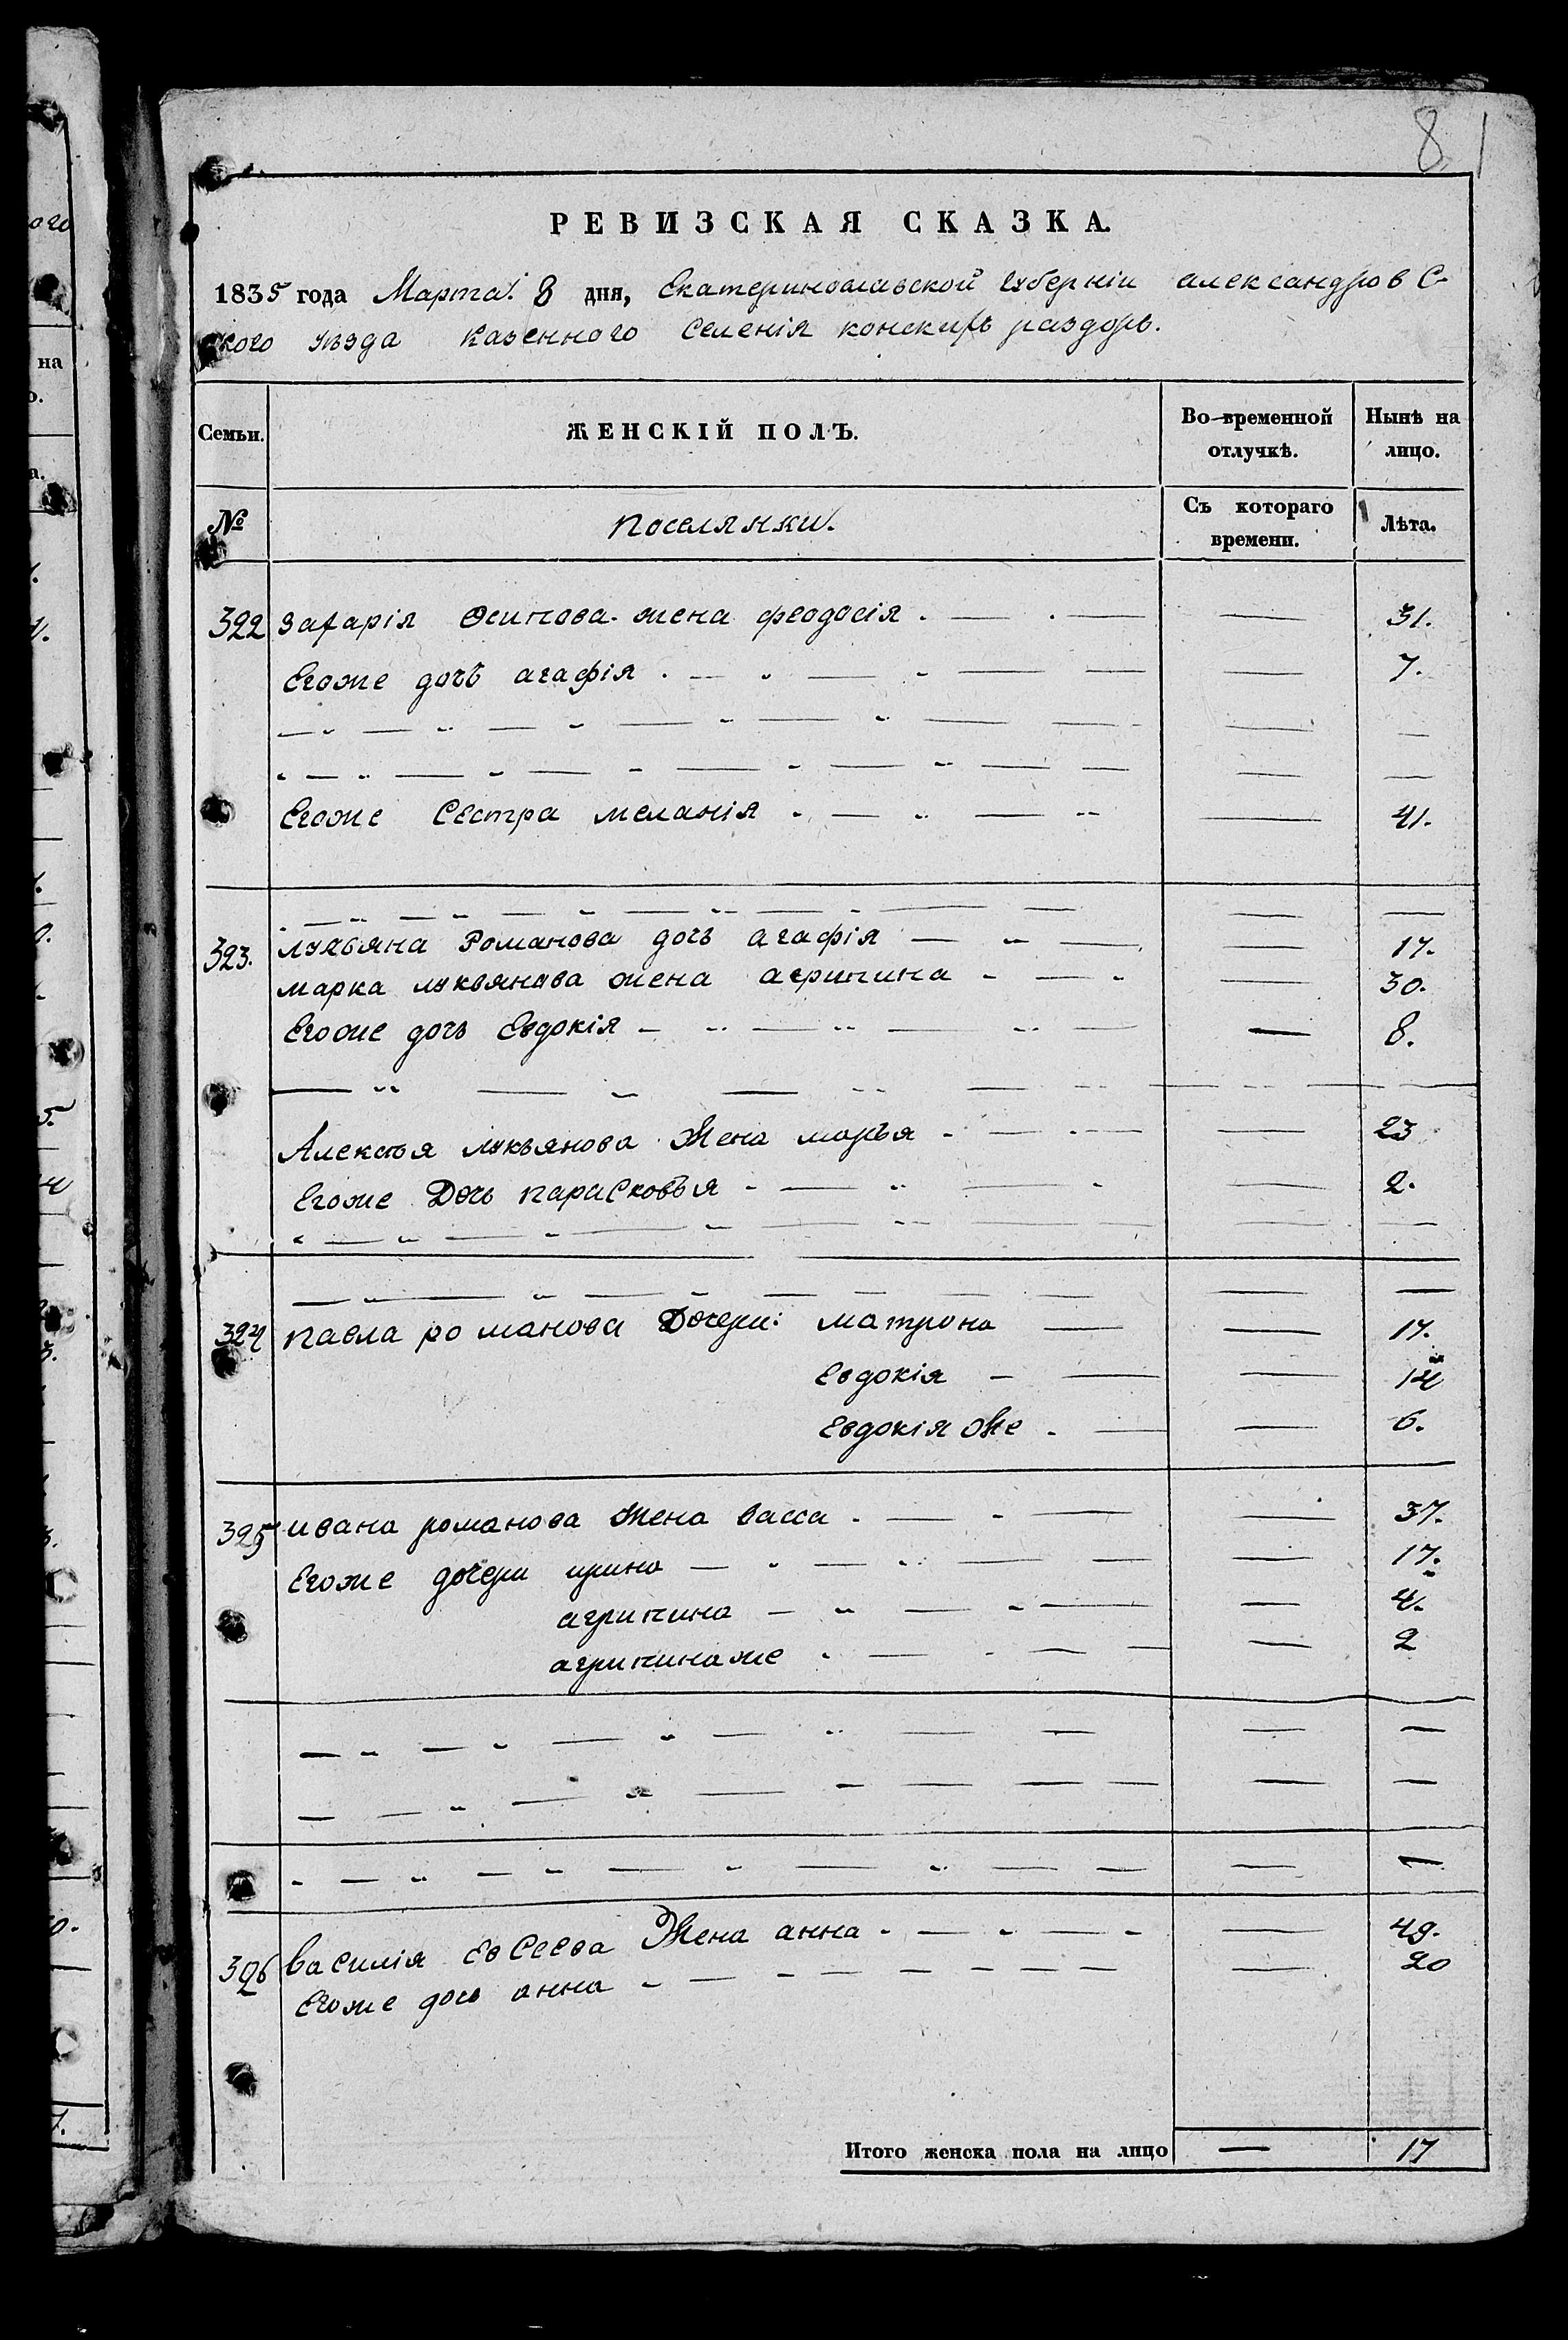 81
РЕВИЗСКАЯ СКАЗКА.
1835 года Марта 8 дня, Екатеринославской губерніи александров С-
кого уѣзда казенного Селенія конскихъ раздоръ.
Семьи. ЖЕНСКІЙ ПОЛЪ. Во-временной отлучкѣ. Нынѣ на лицо.
№ поселянки. Съ котораго времени. Лѣта.
322 Захарія Осипова жена феодосія . — . — — 31.
Егоже дочь агафія — 7.
Егоже Сестра меланія — 41.
323. лукьяна Романова дочь агафія — 17.
марка лукьянова жена агрипина — 30.
Егоже дочь Евдокія — 8.
Алексѣя лукьянова Жена марья — 23
Егоже Дочь парасковья — 2.
324 павла романова Дочери: матрона — 17.
Евдокія — 14
Евдокія же — 6.
325 ивана романова Жена васса — 37.
Егоже дочери ирина — 17.
агрипина — 4.
агрипина же — 2
326 василія Евсеева Жена анна — 49.
Егоже дочь анна — 20
Итого женска пола на лицо — 17